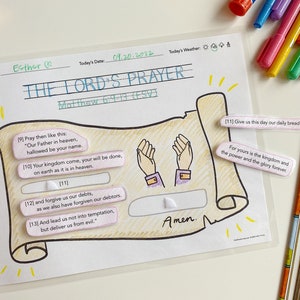 Esther C
Today's Date: 09.20.2022
Today's Weather:
THE LORD'S PRAYER
Matthew 6:9-13 (ESV)
[9] Pray then like this:
"Our Father in heaven,
hallowed be your name.
[10] Your kingdom come, your will be done,
on earth as it is in heaven.
[11]
[12] and forgive us our debts,
as we also have forgiven our debtors.
[13] And lead us not into temptation,
but deliver us from evil."
Amen
[11] Give us this day our daily bread
For yours is the kingdom and
the power and the glory forever.